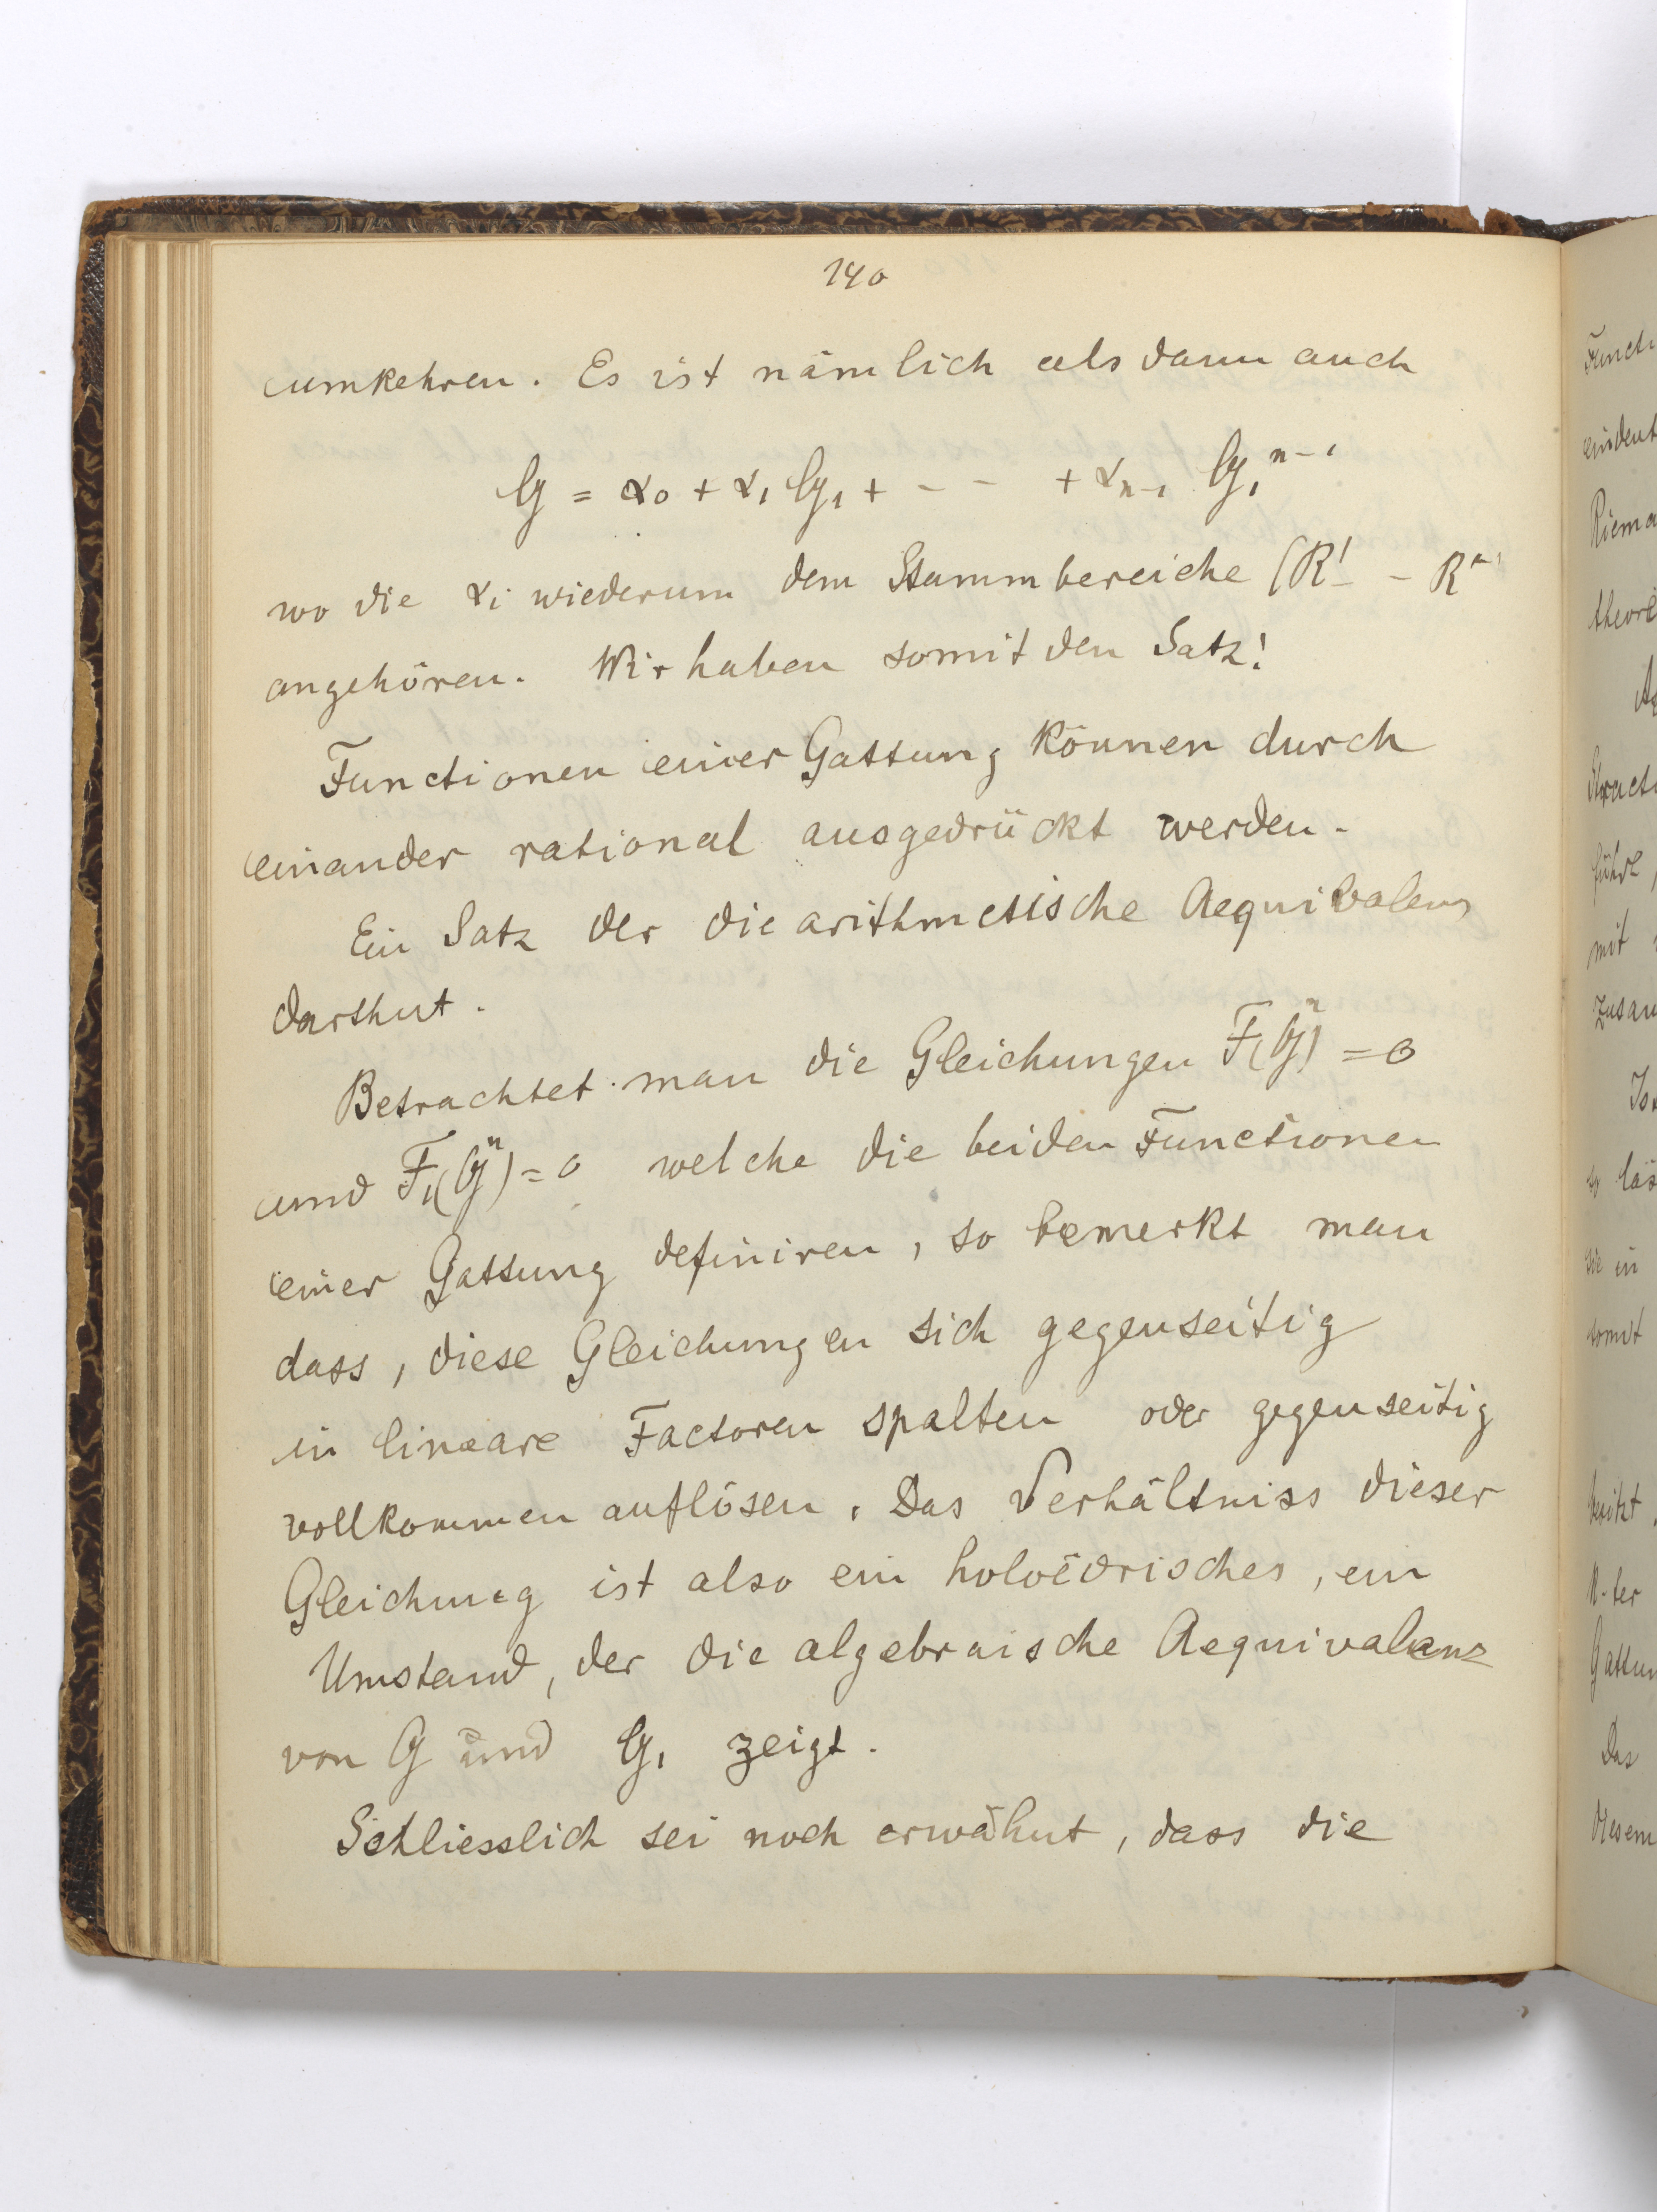 140
umkehren. Es ist nämlich alsdann auch
G = α₀ + α₁ G₁ + - - + αₙ₋₁ G₁ⁿ⁻¹
wo die αᵢ wiederum dem Stammbereiche (R' - - R
angehören. Wir haben somit den Satz!
Functionen einer Gattung können durch
einander rational ausgedrückt werden.
Ein Satz der die arithmetische Aequivalenz
darthut.
Betrachtet man die Gleichungen F(Gⁿ) = 0
und F₁(Gⁿ) = 0 welche die beiden Functionen
einer Gattung definiren, so bemerkt man
dass, diese Gleichungen sich gegenseitig
in lineare Factoren spalten oder gegenseitig
vollkommen auflösen. Das Verhältniss dieser
Gleichung ist also ein holoëdrisches, ein
Umstand, der die algebraische Aequivalenz
von G und G₁ zeigt.
Schliesslich sei noch erwähnt, dass die
Functi
eindeut
Riema
theore
führe,
mit
Zusam
Is
so läs
sie in
somit
besitzt.
n-ter
Gattun
Das
diesem